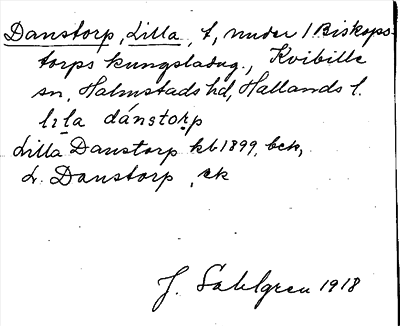 Danstorp, Lilla, t, under 1 Biskops-
torps kungsladug., Kvibille
sn, Halmstads hd, Hallands l.
lı̣la dánstoṛp
Lilla Danstorp kb 1899, bek,
L. Danstorp, ek
J. Sahlgren 1918